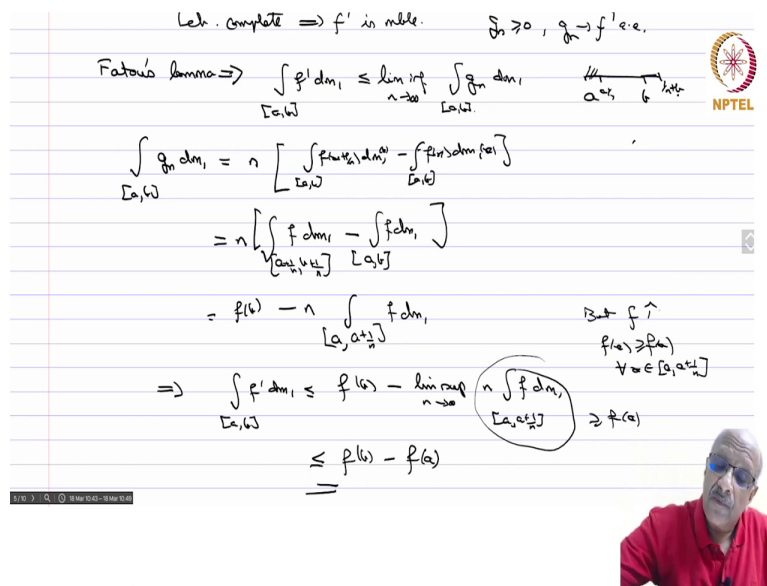 Leb. complete ⟹ f' is mble. gₙ ≥ 0, gₙ → f' a.e.
Fatou's lemma ⟹ ∫_[a,b] f' dm₁ ≤ lim inf_{n→∞} ∫_[a,b] gₙ dm₁
a a+1/n b b+1/n
NPTEL
∫_[a,b] gₙ dm₁ = n [ ∫_[a,b] f(x+1/n) dm₁(x) − ∫_[a,b] f(x) dm₁(x) ]
= n [ ∫_[a+1/n, b+1/n] f dm₁ − ∫_[a,b] f dm₁ ]
= f(b) − n ∫_[a, a+1/n] f dm₁ But f ↑
f(x) ≥ f(a)
∀ x ∈ [a, a+1/n]
⟹ ∫_[a,b] f' dm₁ ≤ f(b) − lim sup_{n→∞} n ∫_[a, a+1/n] f dm₁ ≥ f(a)
≤ f(b) − f(a)
5 / 10 18 Mar 10:43 – 18 Mar 10:49